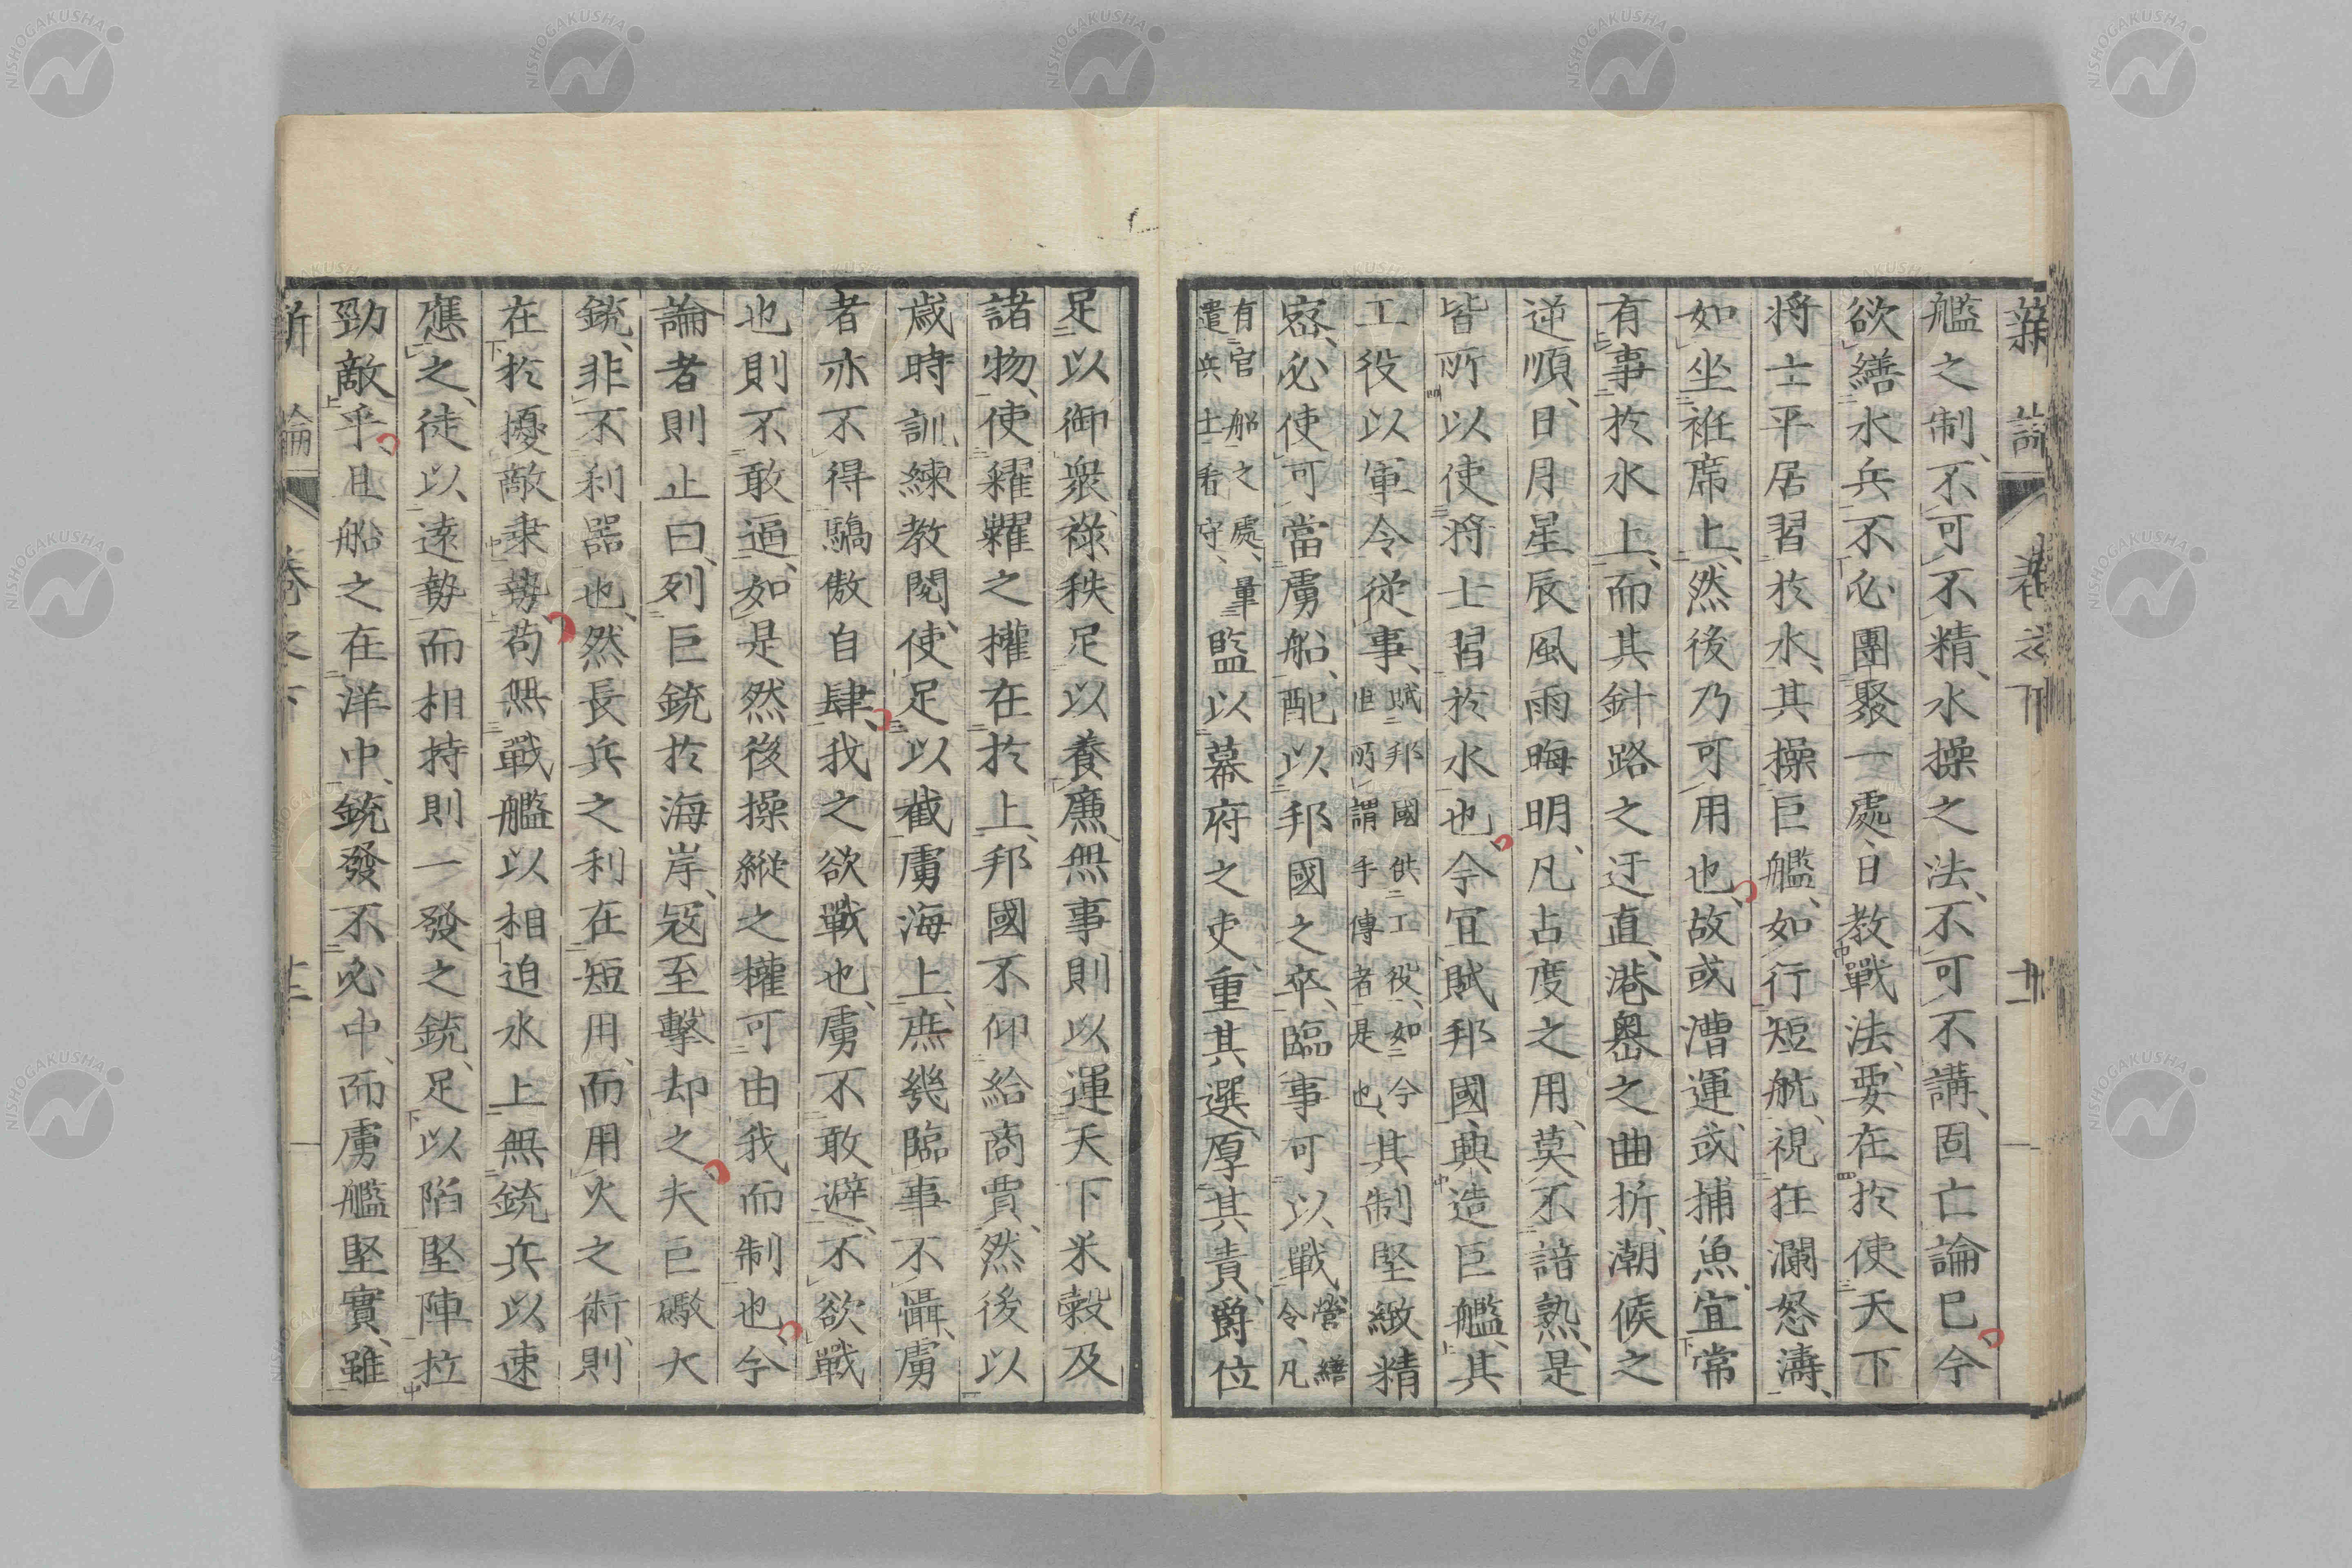 新論 卷之下
艦之制、不可不精、水操之法、不可不講、固亡論已今
欲繕水兵、不必團聚一處、日教戰法、要在於使天下
將士平居習於水、其操巨艦、如行短航、視狂瀾怒濤、
如坐袵席上、然後乃可用也、故或漕運、或捕魚、宜常
有事於水上、而其針路之迂直、港嶴之曲折、潮候之
逆順、日月星辰風雨晦明、凡占度之用、莫不諳熟、是
皆所以使將士習於水也、今宜賦邦國、典造巨艦、其
工役以軍令從事、賦邦國供工役、如今世所謂手傳者是也、其制堅緻精
密、必使可當虜船、配以邦國之卒、臨事可以戰營繕令、凡
有官船之處、量遣兵士看守、監以幕府之吏、重其選、厚其責、爵位
足以御衆、祿秩足以養廉、無事則以運天下米穀及
諸物、使糴糶之權在於上、邦國不仰給商賈、然後以
歲時訓練教閱、使足以截虜海上、庶幾臨事不懾、虜
者亦不得驕傲自肆、我之欲戰也、虜不敢避、不欲戰
也則不敢逼、如是然後操縱之權可由我而制也、今
論者則止曰、列巨銃於海岸、寇至擊却之、夫巨礮大
銃、非不利器也、然長兵之利在短用、而用火之術、則
在於擾敵乘勢、苟無戰艦以相迫水上、無銃兵以速
應之、徒以遠勢而相持、則一發之銃、足以陷堅陣拉
勁敵乎、且船之在洋中、銃發不必中、而虜艦堅實、雖
新論 卷之下